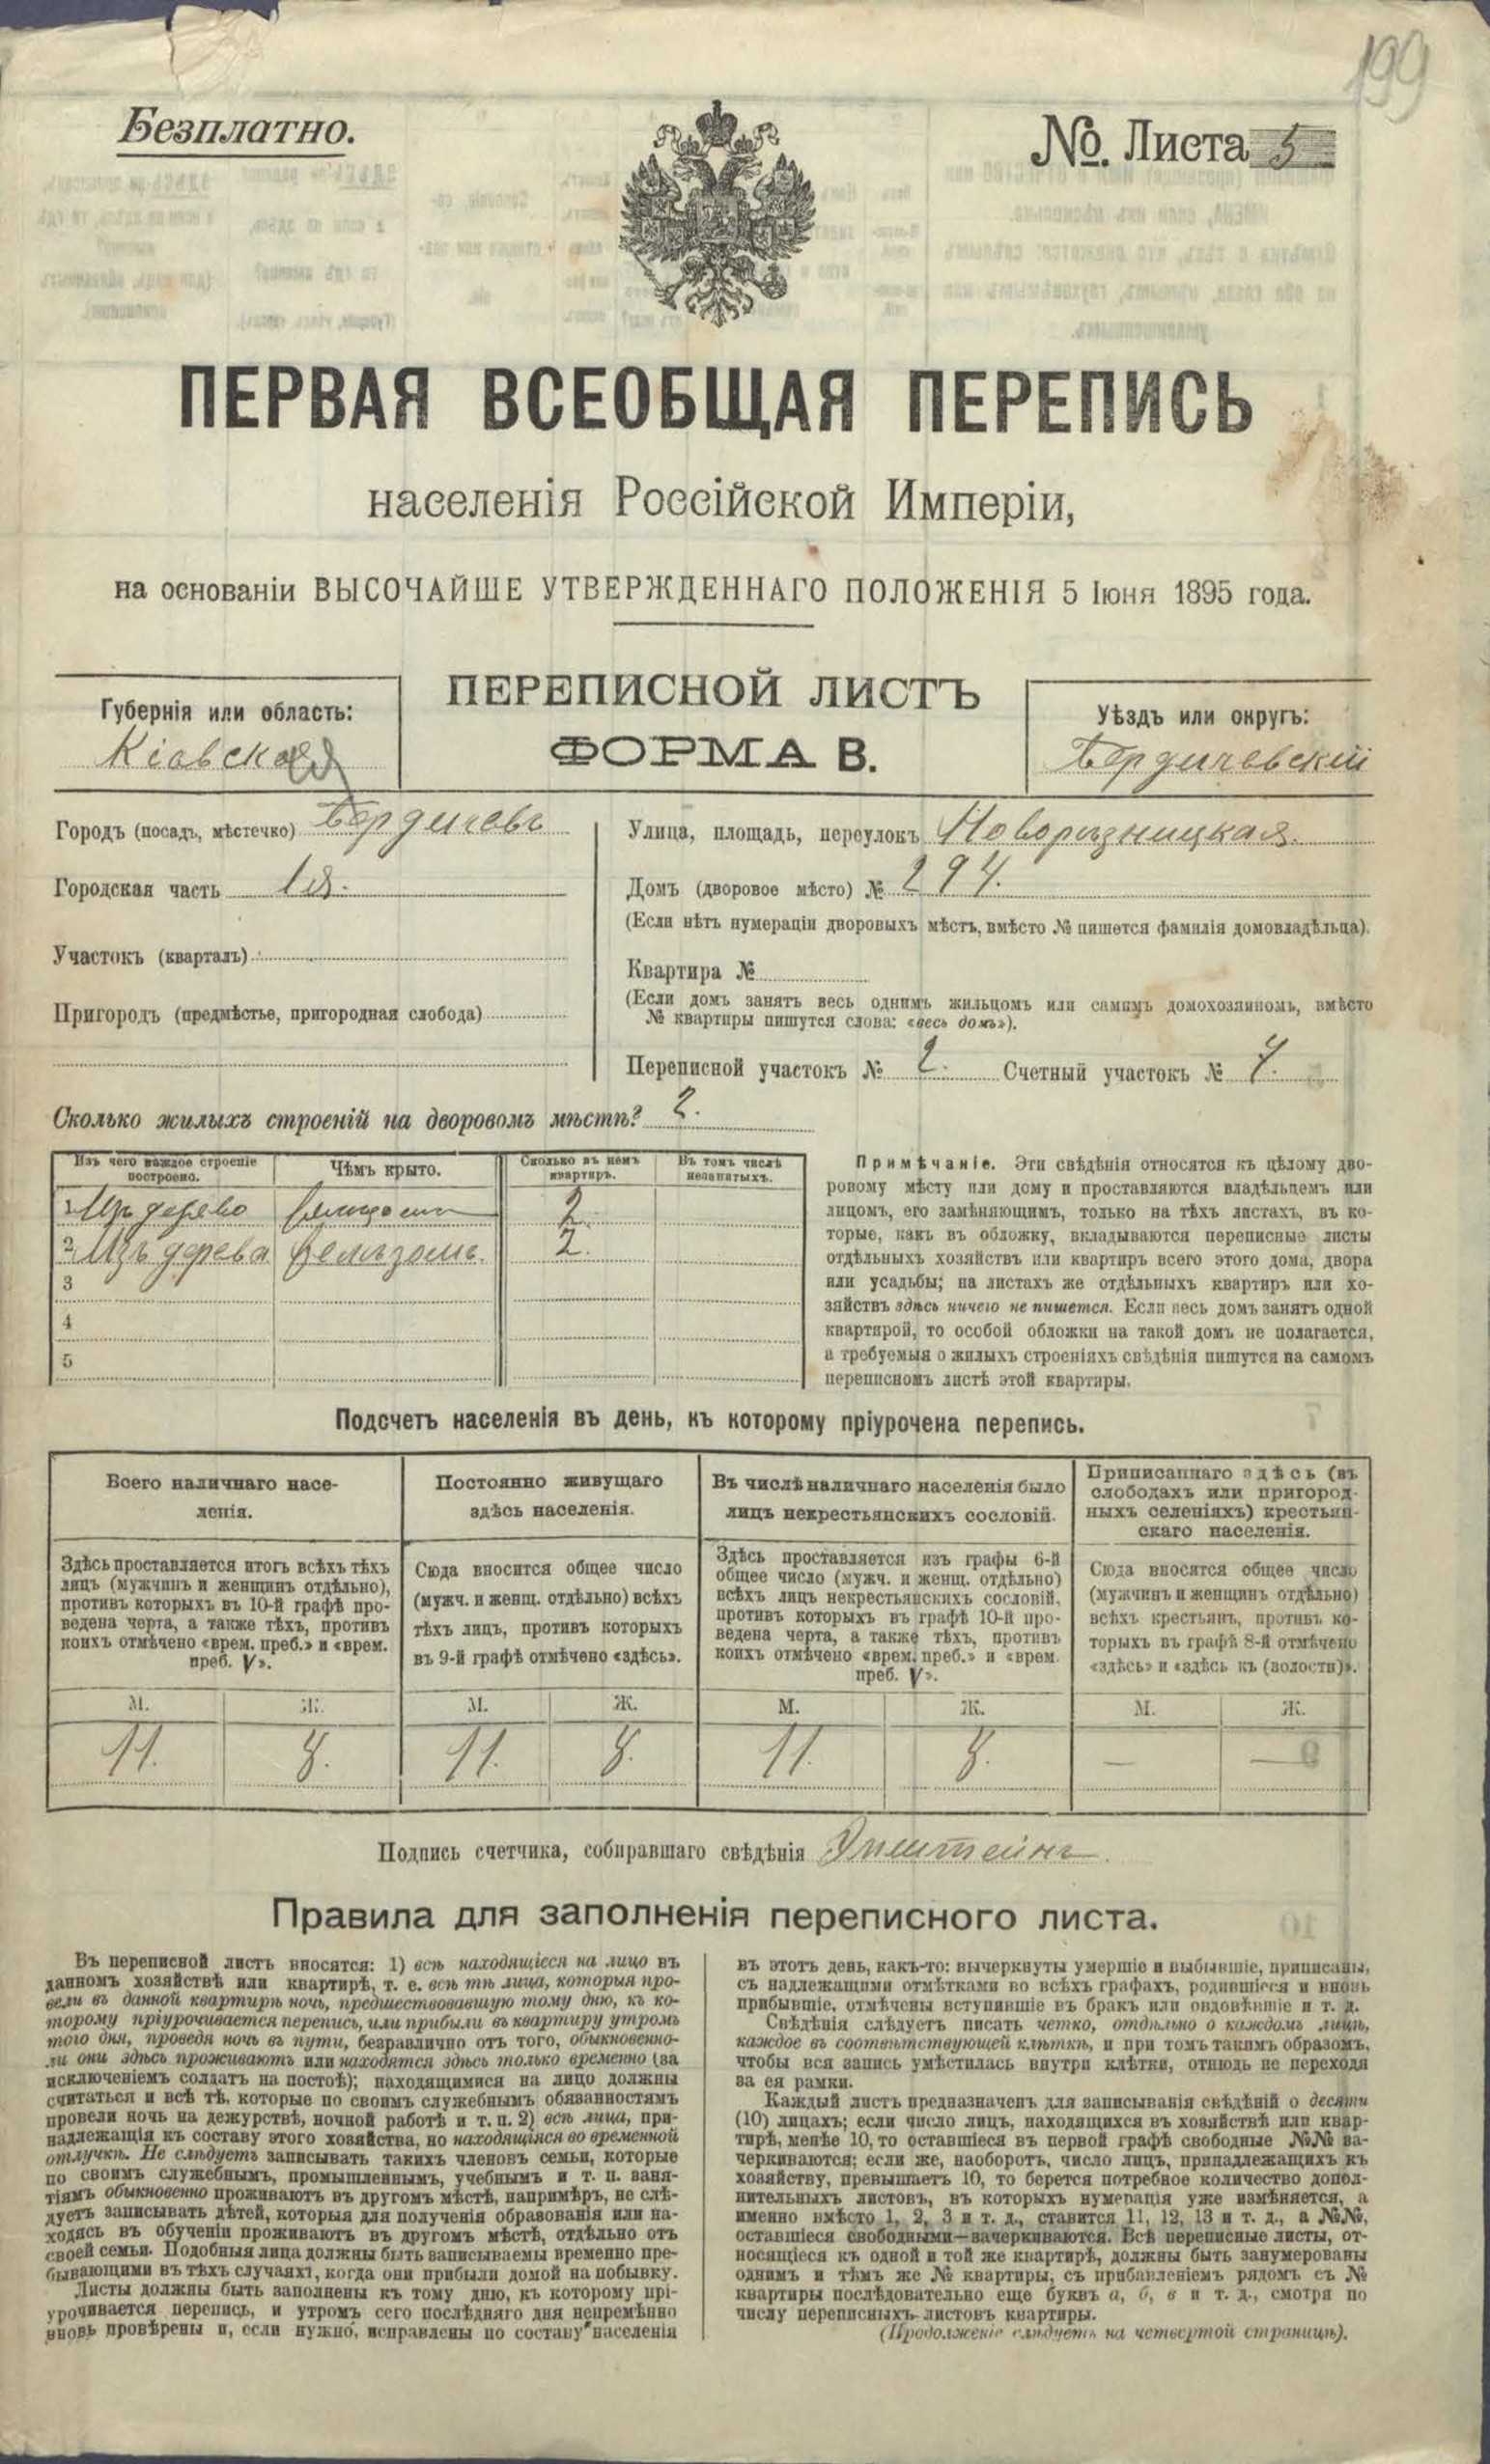 199
Безплатно.
№. Листа 5
ПЕРВАЯ ВСЕОБЩАЯ ПЕРЕПИСЬ
населенія Россійской Имперіи,
на основаніи ВЫСОЧАЙШЕ УТВЕРЖДЕННАГО ПОЛОЖЕНІЯ 5 Іюня 1895 года.
ПЕРЕПИСНОЙ ЛИСТЪ
ФОРМА В.
Губернія или область:
Кіевская
Уѣздъ или округъ:
Бердичевскій
Городъ (посадъ, мѣстечко) Бердичевъ
Городская часть 1я.
Участокъ (кварталъ)
Пригородъ (предмѣстье, пригородная слобода)
Улица, площадь, переулокъ Новорѣзницкая.
Домъ (дворовое мѣсто) № 294.
(Если нѣтъ нумераціи дворовыхъ мѣстъ, вмѣсто № пишется фамилія домовладѣльца).
Квартира №
(Если домъ занятъ весь однимъ жильцомъ или самимъ домохозяиномъ, вмѣсто
№ квартиры пишутся слова: «весь домъ»).
Переписной участокъ № 2. Счетный участокъ № 7.
Сколько жилыхъ строеній на дворовомъ мѣстѣ? 2.
Изъ чего каждое строеніе
построено.
Чѣмъ крыто.
Сколько въ немъ
квартиръ.
Въ томъ числѣ
незанятыхъ.
1 Изъ дерево 2
2 Изъ дерева желѣзомъ. 2.
3
4
5
Примѣчаніе. Эти свѣдѣнія относятся къ цѣлому дво-
ровому мѣсту или дому и проставляются владѣльцемъ или
лицомъ, его замѣняющимъ, только на тѣхъ листахъ, въ ко-
торые, какъ въ обложку, вкладываются переписные листы
отдѣльныхъ хозяйствъ или квартиръ всего этого дома, двора
или усадьбы; на листахъ же отдѣльныхъ квартиръ или хо-
зяйствъ здѣсь ничего не пишется. Если весь домъ занятъ одной
квартирой, то особой обложки на такой домъ не полагается,
а требуемыя о жилыхъ строеніяхъ свѣдѣнія пишутся на самомъ
переписномъ листѣ этой квартиры.
Подсчетъ населенія въ день, къ которому пріурочена перепись.
Всего наличнаго насе-
ленія.
Здѣсь проставляется итогъ всѣхъ тѣхъ
лицъ (мужчинъ и женщинъ отдѣльно),
противъ которыхъ въ 10-й графѣ про-
ведена черта, а также тѣхъ, противъ
коихъ отмѣчено «врем. преб.» и «врем.
преб. V».
Постоянно живущаго
здѣсь населенія.
Сюда вносится общее число
(мужч. и женщ. отдѣльно) всѣхъ
тѣхъ лицъ, противъ которыхъ
въ 9-й графѣ отмѣчено «здѣсь».
Въ числѣ наличнаго населенія было
лицъ некрестьянскихъ сословій.
Здѣсь проставляется изъ графы 6-й
общее число (мужч. и женщ. отдѣльно)
всѣхъ лицъ некрестьянскихъ сословій,
противъ которыхъ въ графѣ 10-й про-
ведена черта, а также тѣхъ, противъ
коихъ отмѣчено «врем. преб.» и «врем.
преб. V».
Приписаннаго здѣсь (въ
слободахъ или пригород-
ныхъ селеніяхъ) крестьян-
скаго населенія.
Сюда вносится общее число
(мужчинъ и женщинъ отдѣльно)
всѣхъ крестьянъ, противъ ко-
торыхъ въ графѣ 8-й отмѣчено
«здѣсь» и «здѣсь къ (волости)».
М. Ж. М. Ж. М. Ж. М. Ж.
11. 8. 11. 8. 11. 8. — —
Подпись счетчика, собиравшаго свѣдѣнія Эпштейнъ.
Правила для заполненія переписного листа.
Въ переписной листъ вносятся: 1) всѣ находящіеся на лицо въ
данномъ хозяйствѣ или квартирѣ, т. е. всѣ тѣ лица, которыя про-
вели въ данной квартирѣ ночь, предшествовавшую тому дню, къ ко-
торому пріурочивается перепись, или прибыли въ квартиру утромъ
того дня, проведя ночь въ пути, безразлично отъ того, обыкновенно-
ли они здѣсь проживаютъ или находятся здѣсь только временно (за
исключеніемъ солдатъ на постоѣ); находящимися на лицо должны
считаться и всѣ тѣ, которые по своимъ служебнымъ обязанностямъ
провели ночь на дежурствѣ, ночной работѣ и т. п. 2) всѣ лица, при-
надлежащія къ составу этого хозяйства, но находящіяся во временной
отлучкѣ. Не слѣдуетъ записывать такихъ членовъ семьи, которые
по своимъ служебнымъ, промышленнымъ, учебнымъ и т. п. заня-
тіямъ обыкновенно проживаютъ въ другомъ мѣстѣ, напримѣръ, не слѣ-
дуетъ записывать дѣтей, которыя для полученія образованія или на-
ходясь въ обученіи проживаютъ въ другомъ мѣстѣ, отдѣльно отъ
своей семьи. Подобныя лица должны быть записываемы временно пре-
бывающими въ тѣхъ случаяхъ, когда они прибыли домой на побывку.
Листы должны быть заполнены къ тому дню, къ которому прі-
урочивается перепись, и утромъ сего послѣдняго дня непремѣнно
вновь провѣрены и, если нужно, исправлены по составу населенія
въ этотъ день, какъ-то: вычеркнуты умершіе и выбывшіе, приписаны,
съ надлежащими отмѣтками во всѣхъ графахъ, родившіеся и вновь
прибывшіе, отмѣчены вступившіе въ бракъ или овдовѣвшіе и т. д.
Свѣдѣнія слѣдуетъ писать четко, отдѣльно о каждомъ лицѣ,
каждое въ соотвѣтствующей клѣткѣ, и при томъ такимъ образомъ,
чтобы вся запись умѣстилась внутри клѣтки, отнюдь не переходя
за ея рамки.
Каждый листъ предназначенъ для записыванія свѣдѣній о десяти
(10) лицахъ; если число лицъ, находящихся въ хозяйствѣ или квар-
тирѣ, менѣе 10, то оставшіеся въ первой графѣ свободные №№ за-
черкиваются; если же, наоборотъ, число лицъ, принадлежащихъ къ
хозяйству, превышаетъ 10, то берется потребное количество допол-
нительныхъ листовъ, въ которыхъ нумерація уже измѣняется, а
именно вмѣсто 1, 2, 3 и т. д., ставится 11, 12, 13 и т. д., а №№,
оставшіеся свободными—зачеркиваются. Всѣ переписные листы, от-
носящіеся къ одной и той же квартирѣ, должны быть занумерованы
однимъ и тѣмъ же № квартиры, съ прибавленіемъ рядомъ съ №
квартиры послѣдовательно еще буквъ а, б, в и т. д., смотря по
числу переписныхъ листовъ квартиры.
(Продолженіе слѣдуетъ на четвертой страницѣ).